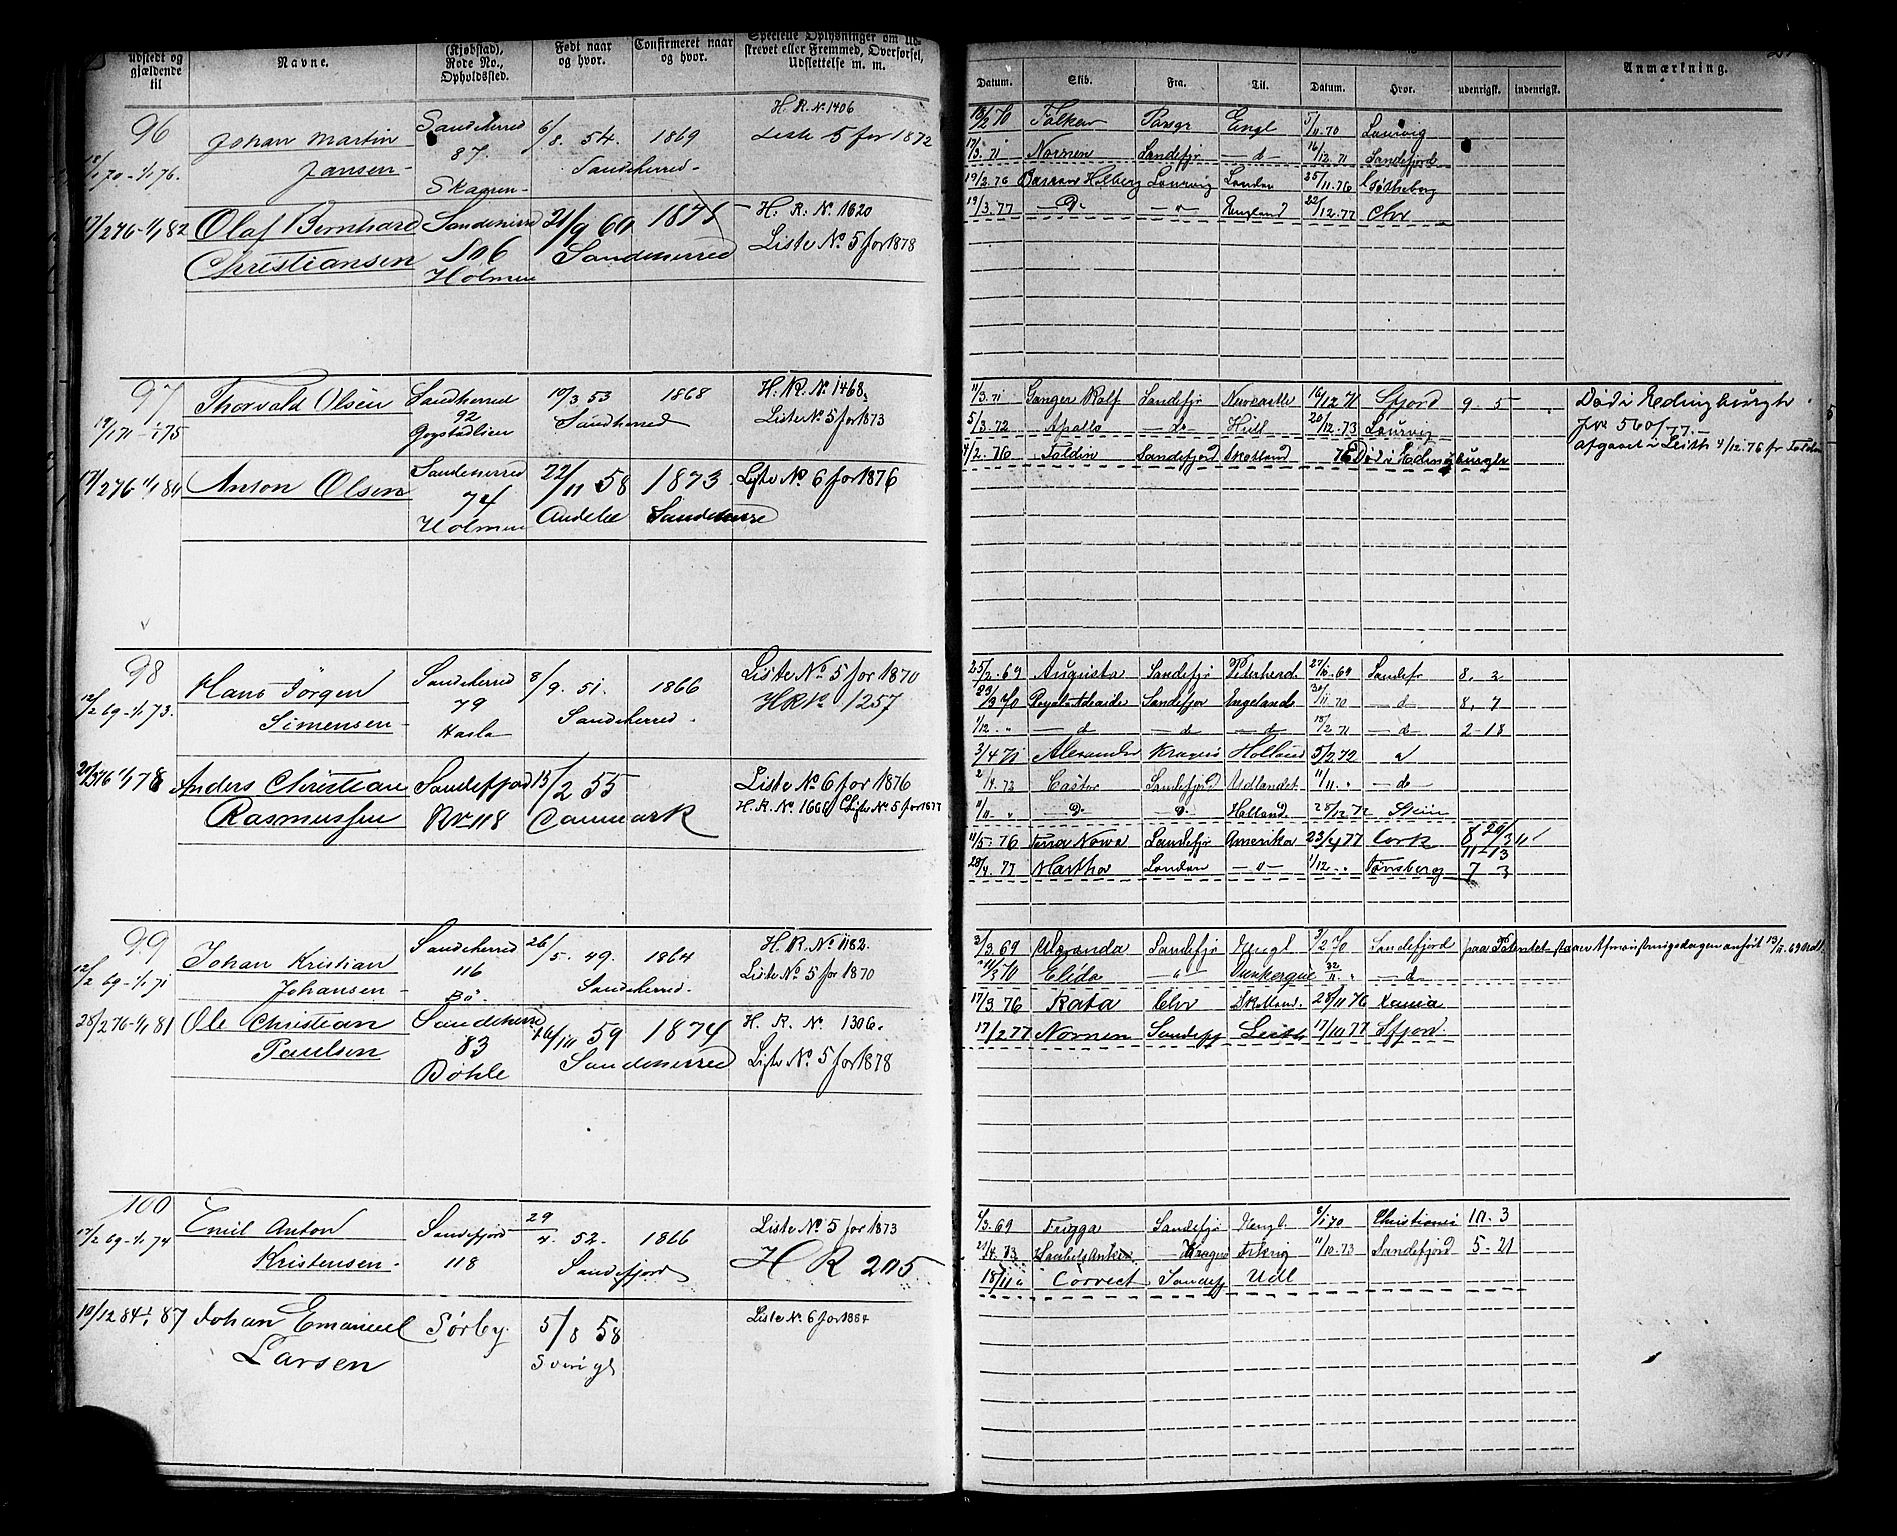 udstedt og
gjældende
til
Navne.
(Kjøbstad),
Rode No.,
Opholdssted.
Født naar
og hvor.
Confirmeret naar
og hvor.
Specielle Oplysninger om Ud-
skrevet eller Fremmed, Overførsel,
Udslettelse m. m.
96
Johan Martin
Jansen
Sandeherred
87.
Skagen
6/8. 54.
1869
Sandeherred
H. R. N. 1406
Liste 5 for 1872
17/2 76 - 1/1 82
Olaf Bernhard
Christiansen
Sandeherred
106
Holmen
21/9 60
1875
Sandeherred
H. R. N. 1620
Liste No. 5 for 1878
97
19/1 71 - 1/1 75
Thorvald Olsen
Sandherred
92
10/3 53
1868
Sandherred
H. R. N. 1468.
Liste No. 5 for 1873
Anton Olsen
Sandeherred
74
Holmen
22/11 58
Andebu
1873
Liste No. 6 for 1876
98
12/2 69 - 1/1 73.
Hans Jörgen
Simensen
Sandeherred
79
Hasle
8/9. 51.
1866
Sandeherred.
Liste No. 5 for 1870
HRN 1257
Anders Christian
Rasmussen
Sandefjord
No 118
13/2 55
Danmark
Liste No. 6 for 1876
H. R. No. 1666 Liste No. 5 for 1877
99
12/2 69 - 1/1 71
Johan Kristian
Johansen
Sandeherred
116
Bö.
26/5. 49.
1864
Sandeherred.
H. R. No. 1182.
Liste No. 5 for 1870
28/2 76 - 1/1 81
Ole Christian
Paulsen
Sandeherred
83
Bökle
16/10 59
1874
Sandeherred
H. R. No. 1306.
Liste No. 5 for 1878
100
17/2 69 - 1/1 74
Emil Anton
Kristensen
Sandefjord
118
29/4. 52.
1866
Sandefjord
Liste No. 5 for 1873
H R 205
10/12 84 1/1 87
Johan Emanuel
Larsen
Sörby
5/8 58
Sverige
Liste No. 6 for 1884
Datum. Skib. Fra. Til. Datum. Hvor. udenrigsk. indenrigsk. Anmærkning.
Falken Engl 5/11. 70 Laurvig
17/3. 71 Nornen Sandefjr - d 16/12. 71 Sandefjord
19/2. 76 Laurvig London 25/11. 76
19/3. 77 - D - - " - England 22/12. 77 Chr
11/3. 71 Ganger Ralf Sandefjr Newcastle 16/12 71 Sfjord 9 - 5 Död i Edingburgh
5/3. 72 Apollo - D - Hull 20/12. 73 Laurvig Jr 560/77.
4/2. 76 Foldin Sandefjord Skotland 76 Död i Edingburgh afgaaet i Leith 4/12. 76 fr Foldin
25/2. 69 Augusta Sandefjr Peterherd 27/10. 69 Sandefr 8. 2
23/3 70 Royal Adelaide Sandefjor Engeland 30/11 70 - d 8. 7
1/12 " - d - d - d 18/2 71 - d 2 - 18
3/4 71 Alexander Kragerö Holland 5/2 72 d
2/4. 72 Castor Sandefjord Udlandet 11/11. " - d
11/11 " - D - - D - Holland 28/12 72 Skien
11/5. 76 Terra Nowa Sandefjr Amerika 23/4 77 Cork
28/4. 77 Martha London - " - 1/12. " Tönsberg 7 3
3/3. 69 Sandefjr Engl 3/2 70 Sandefjord
Elida - " Dunkerque - d
17/3. 76 Rata Chr Skotland. 28/11 76 Xania
17/2 77 Nornen Sandefj Leith 17/10 77 Sfjord.
1/3. 69 Frigga Sandefjr Engl. 9/1 70 Christiania 10. 3
21/4. 73 Kragerö 11/10. 73 Sandefjord 5 - 21
18/11 " Correct Sandefj Udl